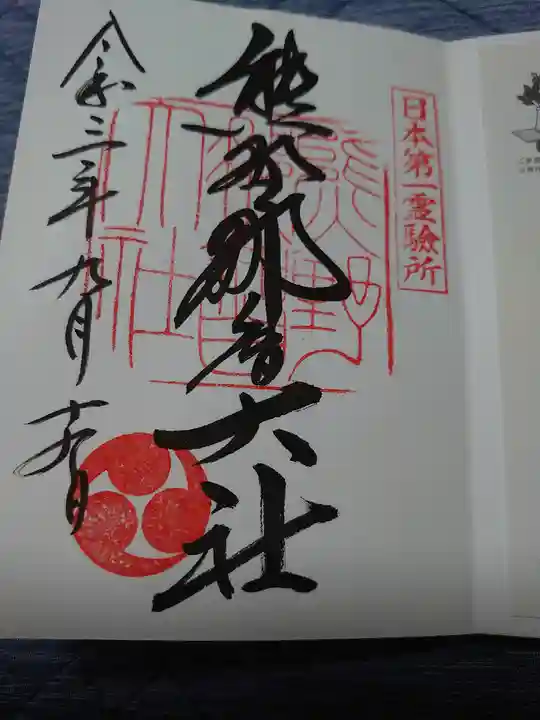 日本第一霊験所
熊野那智大社
令和三年九月十九日
熊野
那智
大社